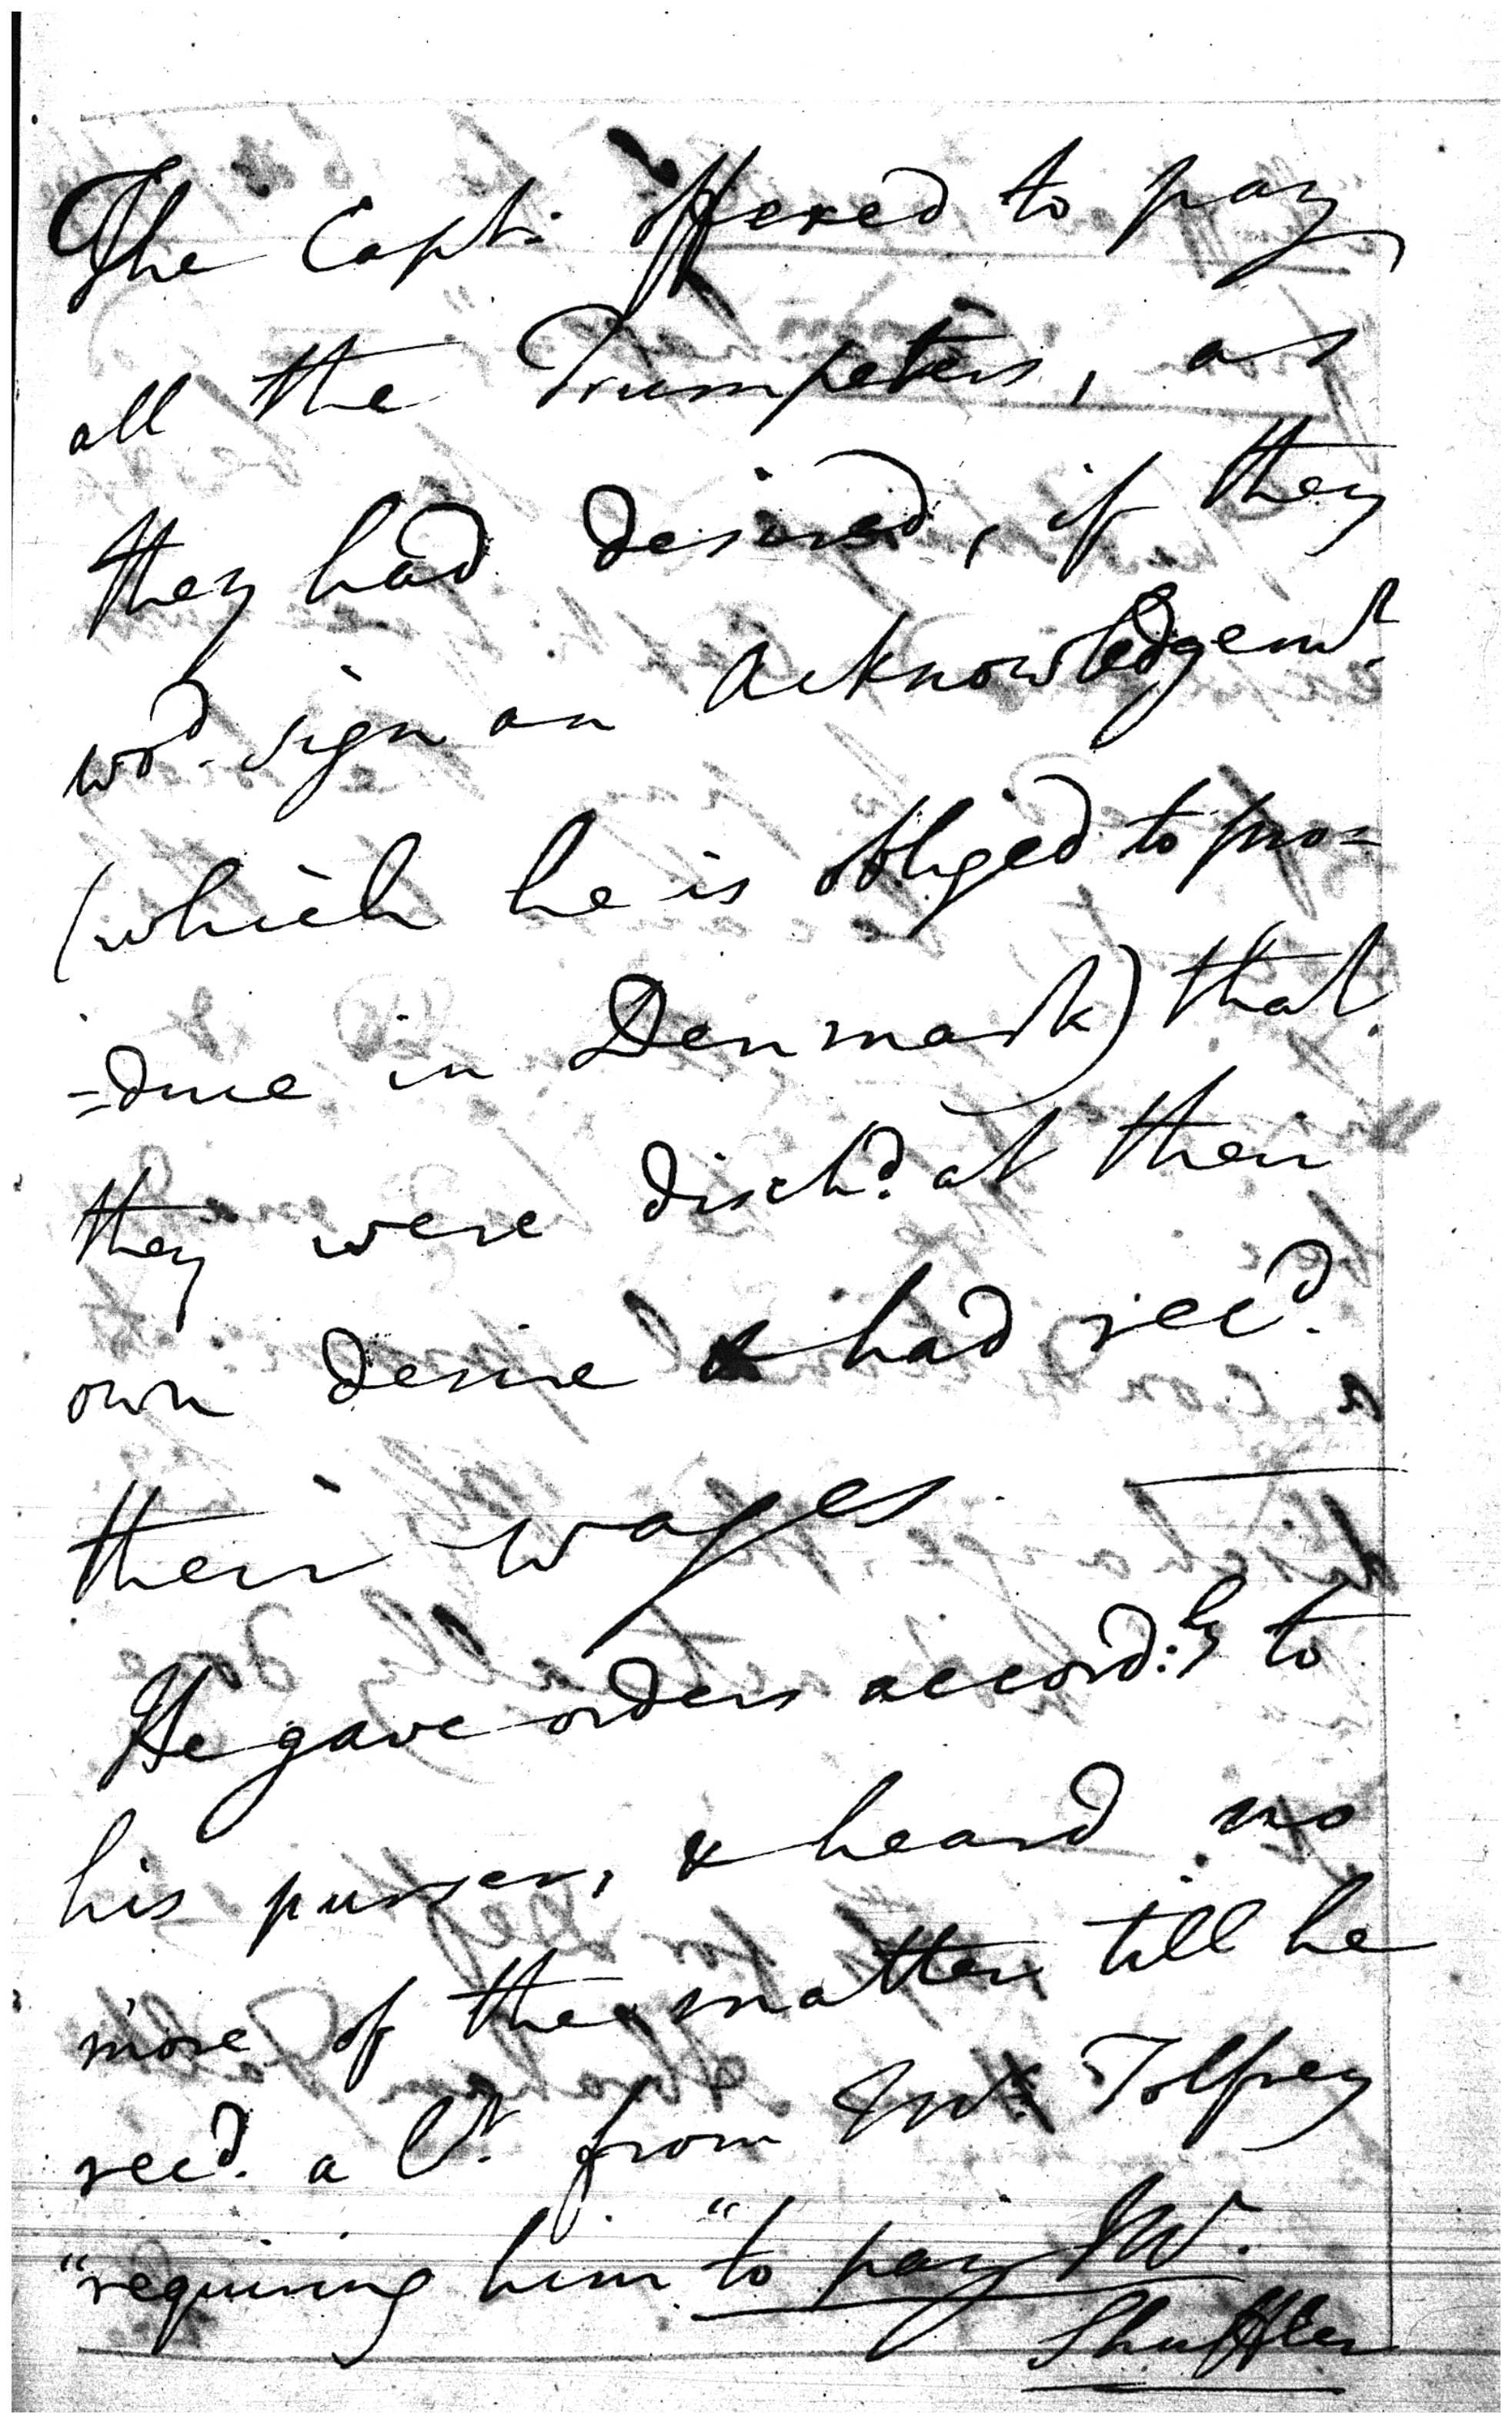 The Capt: offered to pay
all the Trumpeters, as
they had desired, if they
wod. sign an acknowledgemt.
(which he is obliged to pro=
=duce in Denmark) that
they were dischd. at their
own desire & had recd.
their wages
He gave orders accord:ly to
his purser, & heard no
more of the matter till he
recd. a lr. from Mr. Tolfrey
"requiring him "to pay Mr.
Shuffler